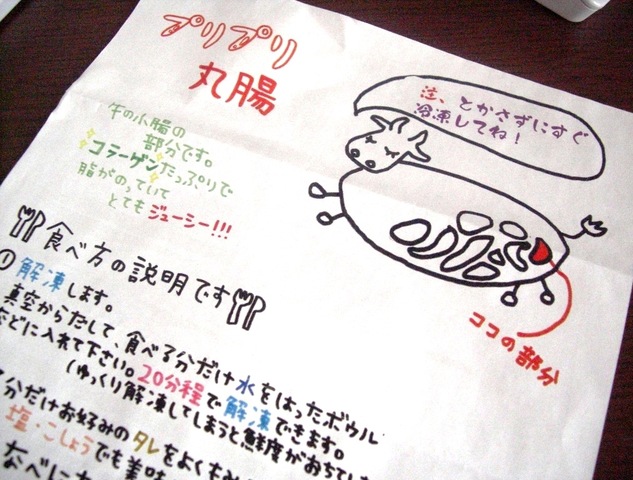 プリプリ
丸腸
注、とかさずにすぐ
冷凍してね!
牛の小腸の
部分です。
コラーゲンたっぷりで
脂がのっていて
とてもジューシー!!!
食べ方の説明です
① 解凍します。
真空からだして、食べる分だけ水をはったボウル
などに入れて下さい。20分程で解凍できます。
(ゆっくり解凍してしまうと鮮度がおちてい
分だけお好みのタレをよくもみ
塩・こしょうでも美味
なべに
ココの部分